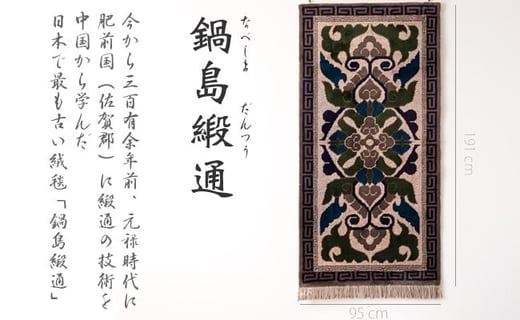 鍋島緞通
なべしま だんつう
今から三百有余年前、元禄時代に
肥前国（佐賀郡）に緞通の技術を
中国から学んだ
日本で最も古い絨毯「鍋島緞通」
191 cm
95 cm